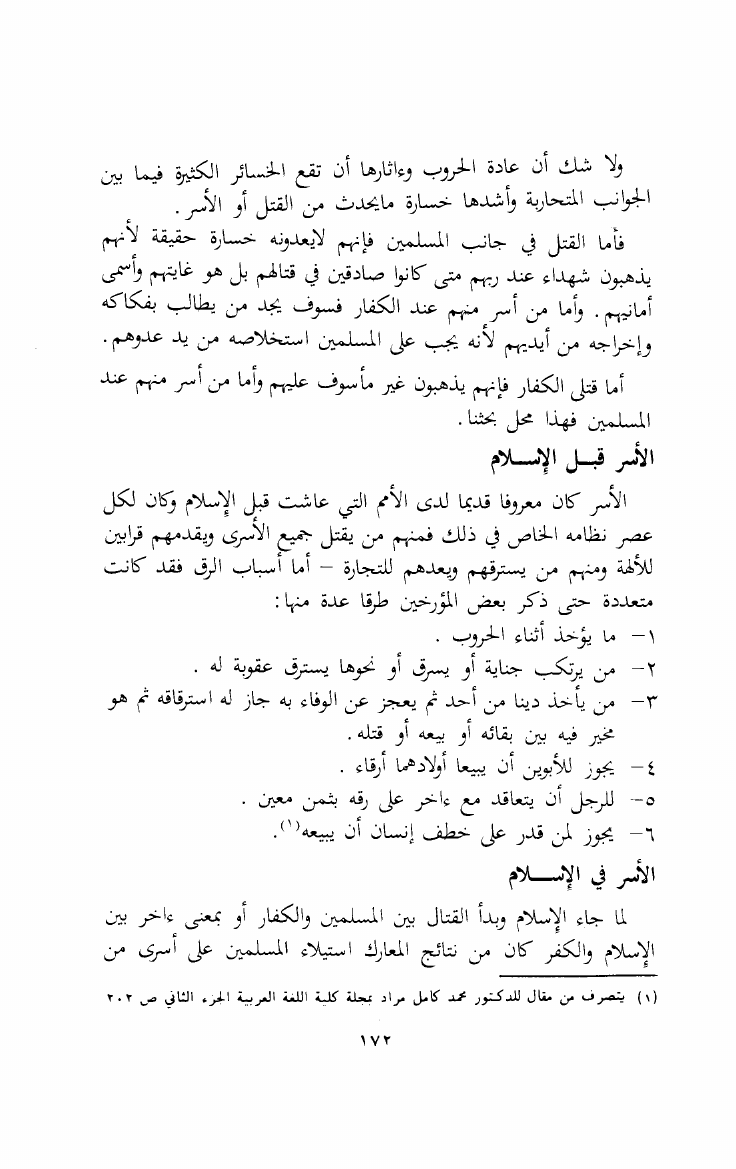 ولا شك أن عادة الحروب وءاثارها أن تقع الخسائر الكثيرة فيما بين
الجوانب المتحاربة وأشدها خسارة مايحدث من القتل أو الأسر.
فأما القتل في جانب المسلمين فإنهم لايعدونه خسارة حقيقة لأنهم
يذهبون شهداء عند ربهم متى كانوا صادقين في قتالهم بل هو غايتهم وأسمى
أمانيهم. وأما من أسر منهم عند الكفار فسوف يجد من يطالب بفكاكه
وإخراجه من أيديهم لأنه يجب على المسلمين استخلاصه من يد عدوهم.
أما قتلى الكفار فإنهم يذهبون غير مأسوف عليهم وأما من أسر منهم عند
المسلمين فهذا محل بحثنا.
الأسر قبل الإسلام
الأسر كان معروفا قديما لدى الأمم التي عاشت قبل الإسلام وكان لكل
عصر نظامه الخاص في ذلك فمنهم من يقتل جميع الأسرى ويقدمهم قرابين
للألهة ومنهم من يسترقهم ويعدهم للتجارة – أما أسباب الرق فقد كانت
متعددة حتى ذكر بعض المؤرخين طرقا عدة منها:
١– ما يؤخذ أثناء الحروب .
٢– من يرتكب جناية أو يسرق أو نحوها يسترق عقوبة له .
٣– من يأخذ دينا من أحد ثم يعجز عن الوفاء به جاز له استرقاقه ثم هو
مخير فيه بين بقائه أو بيعه أو قتله.
٤– يجوز للأبوين أن يبيعا أولادهما أرقاء .
٥– للرجل أن يتعاقد مع ءاخر على رقه بثمن معين .
٦– يجوز لمن قدر على خطف إنسان أن يبيعه(١).
الأسر في الإسلام
لما جاء الإسلام وبدأ القتال بين المسلمين والكفار أو بمعنى ءاخر بين
الإسلام والكفر كان من نتائج المعارك استيلاء المسلمين على أسرى من
(١) يتصرف من مقال للدكتور محمد كامل مراد بمجلة كلية اللغة العربية الجزء الثاني ص ٢٠٢
١٧٢